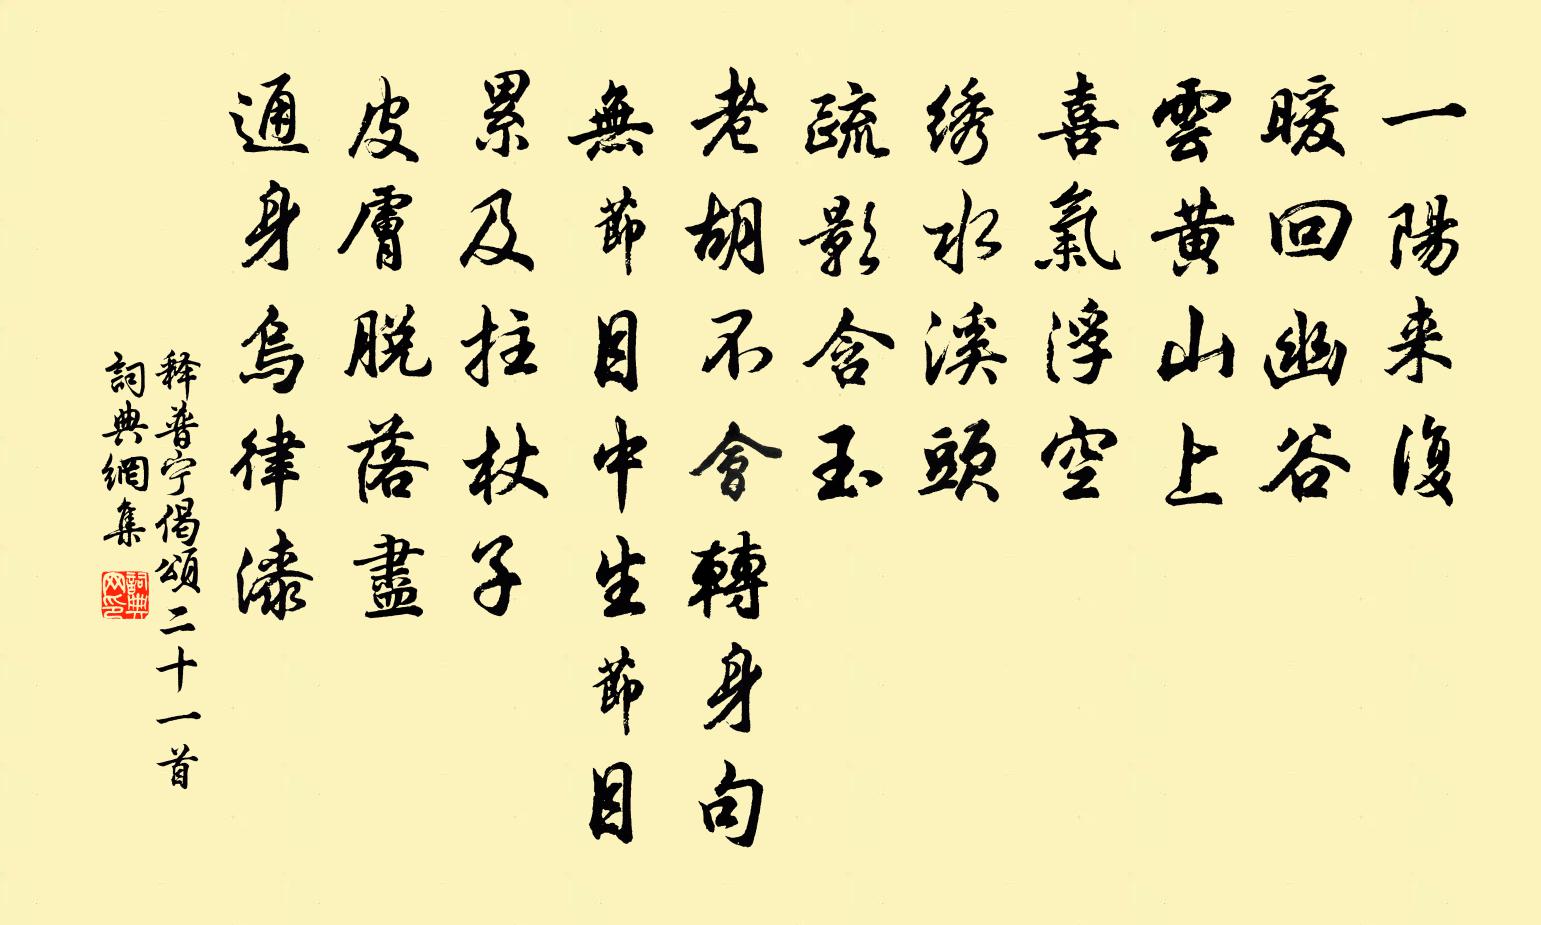 一陽来復
暖回幽谷
雲黄山上
喜氣浮空
绣水溪頭
疏影含玉
老胡不會轉身句
無節目中生節目
累及拄杖子
皮膚脱落盡
通身烏律漆
释普宁偈頌二十一首
詞典網集
詞典网印